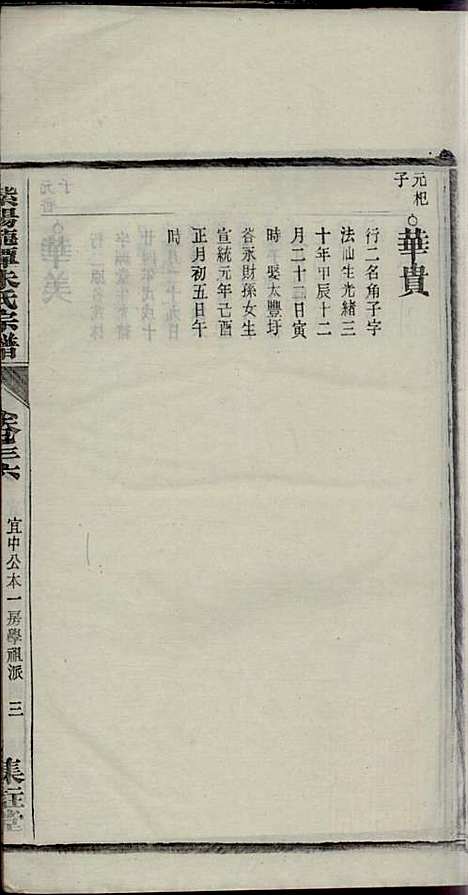 元杞子
華貴
行二名角子字
法仙生光緒三
十年甲辰十二
月二十二日寅
時 娶太豐圩
咎永財孫女生
宣統元年己酉
正月初五日午
時
紫陽龍潭朱氏宗譜
卷三六
宜中公本一房學禮派
三
集註堂